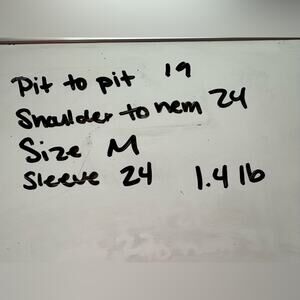 Pit to pit 19
Shoulder to hem 24
Size M
Sleeve 24 1.4 lb